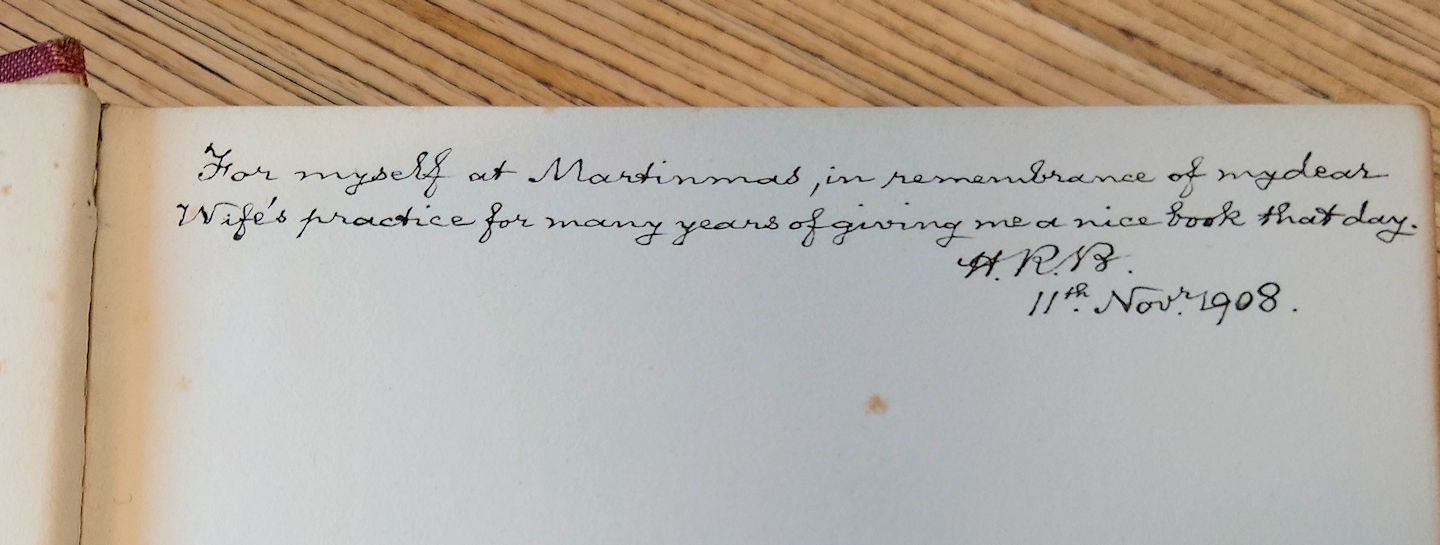 For myself at Martinmas, in remembrance of my dear
Wife's practice for many years of giving me a nice book that day.
H.R.B.
11th. Novr. 1908.